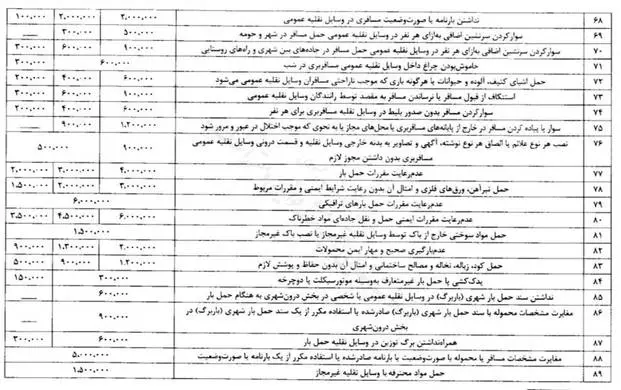 ۶۸ نداشتن بارنامه یا صورت‌وضعیت مسافری در وسایل نقلیه عمومی ۳.۰۰۰.۰۰۰ ۲.۰۰۰.۰۰۰ ۱۰۰.۰۰۰
۶۹ سوارکردن سرنشین اضافی به‌ازای هر نفر در وسایل نقلیه عمومی حمل مسافر در شهر و حومه ۵۰۰.۰۰۰ ۳۰۰.۰۰۰
۷۰ سوارکردن سرنشین اضافی به‌ازای هر نفر در وسایل نقلیه عمومی حمل مسافر در جاده‌های بین شهری و راه‌های روستایی ۹۰۰.۰۰۰ ۶۰۰.۰۰۰ ۳۰۰.۰۰۰
۷۱ خاموش‌بودن چراغ داخل وسایل نقلیه عمومی مسافربری در شب ۶۰۰.۰۰۰ ۳۰۰.۰۰۰
۷۲ حمل اشیای کثیف، آلوده و حیوانات یا هرگونه باری که موجب ناراحتی مسافران وسایل نقلیه عمومی می‌شود ۶۰۰.۰۰۰ ۴۰۰.۰۰۰ ۲۰۰.۰۰۰
۷۳ استنکاف از قبول مسافر یا نرساندن مسافر به مقصد توسط رانندگان وسایل نقلیه عمومی ۹۰۰.۰۰۰ ۶۰۰.۰۰۰ ۳۰۰.۰۰۰
۷۴ سوارکردن مسافر بدون صدور بلیط در وسایل نقلیه مسافربری برای هر نفر ۶۰۰.۰۰۰ ۴۰۰.۰۰۰ ۲۰۰.۰۰۰
۷۵ سوار یا پیاده کردن مسافر در خارج از پایانه‌های مسافربری یا محل‌های مجاز یا به نحوی که موجب اختلال در عبور و مرور شود ۱.۲۰۰.۰۰۰ ۹۰۰.۰۰۰
۷۶ نصب هر نوع علائم یا الصاق هر نوع نوشته، آگهی و تصاویر به بدنه خارجی وسایل نقلیه و قسمت درونی وسایل نقلیه عمومی ۹۰۰.۰۰۰ ۵۰۰.۰۰۰
مسافربری بدون داشتن مجوز لازم
۷۷ عدم‌رعایت مقررات حمل بار ۴.۰۰۰.۰۰۰ ۳.۰۰۰.۰۰۰ ۲.۰۰۰.۰۰۰
۷۸ حمل تیرآهن، ورق‌های فلزی و امثال آن بدون رعایت شرایط ایمنی و مقررات مربوط ۳.۰۰۰.۰۰۰ ۲.۰۰۰.۰۰۰ ۱.۵۰۰.۰۰۰
۷۹ عدم‌رعایت مقررات حمل بارهای ترافیکی ۶.۰۰۰.۰۰۰
۸۰ عدم‌رعایت مقررات ایمنی حمل و نقل جاده‌ای مواد خطرناک ۶.۰۰۰.۰۰۰ ۴.۵۰۰.۰۰۰ ۳.۵۰۰.۰۰۰
۸۱ حمل مواد سوختی خارج از باک توسط وسایل نقلیه غیرمجاز یا نصب باک غیرمجاز ۱.۵۰۰.۰۰۰
۸۲ عدم‌بارگیری صحیح و مهار ایمن محمولات ۲.۰۰۰.۰۰۰ ۱.۳۰۰.۰۰۰ ۹۰۰.۰۰۰
۸۳ حمل کود، زباله، نخاله و مصالح ساختمانی و امثال آن بدون حفاظ و پوشش لازم ۱.۲۰۰.۰۰۰ ۹۰۰.۰۰۰ ۵۰۰.۰۰۰
۸۴ یدک‌کشی یا حمل بار غیرمتعارف به‌وسیله موتورسیکلت یا دوچرخه ۳۰۰.۰۰۰ ۱۵۰.۰۰۰
۸۵ نداشتن سند حمل بار شهری (باربرگ) در وسایل نقلیه عمومی یا شخصی در بخش درون‌شهری به هنگام حمل بار ۶۰۰.۰۰۰
۸۶ مغایرت مشخصات محموله با سند حمل بار شهری (باربرگ) صادرشده یا استفاده مکرر از یک سند حمل بار شهری (باربرگ) در ۹۰۰.۰۰۰
بخش درون‌شهری
۸۷ همراه‌نداشتن برگ توزین در وسایل نقلیه حمل بار ۶۰۰.۰۰۰ ۳۰۰.۰۰۰
۸۸ مغایرت مشخصات مسافر یا محموله با صورت‌وضعیت یا بارنامه صادرشده یا استفاده مکرر از یک بارنامه یا صورت‌وضعیت ۵.۰۰۰.۰۰۰
۸۹ حمل مواد محترقه با وسایل نقلیه غیرمجاز ۱.۵۰۰.۰۰۰